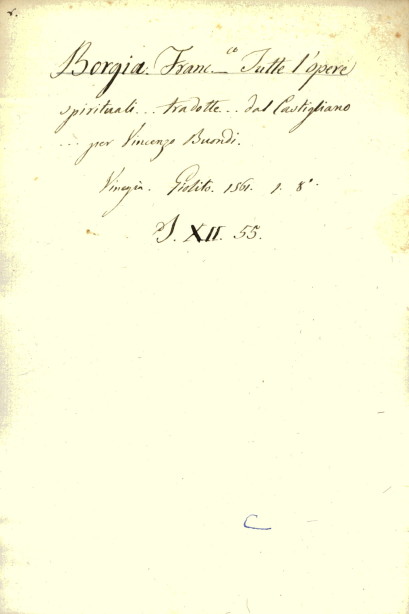 Borgia. Franc.co Tutte l'opere
spirituali... tradotte... dal Castigliano
... per Vincenzo Buondi.
Vinegia. Giolito. 1561. 1. 8°.
J. XII. 55.
C